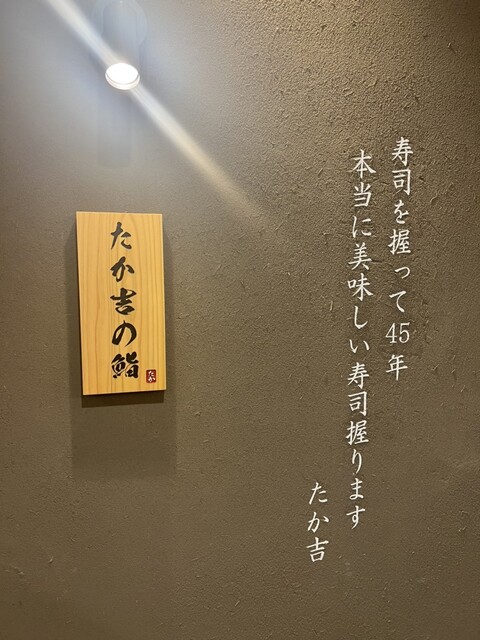 寿司を握って45年
本当に美味しい寿司握ります
たか吉
たか吉の鮨
たか